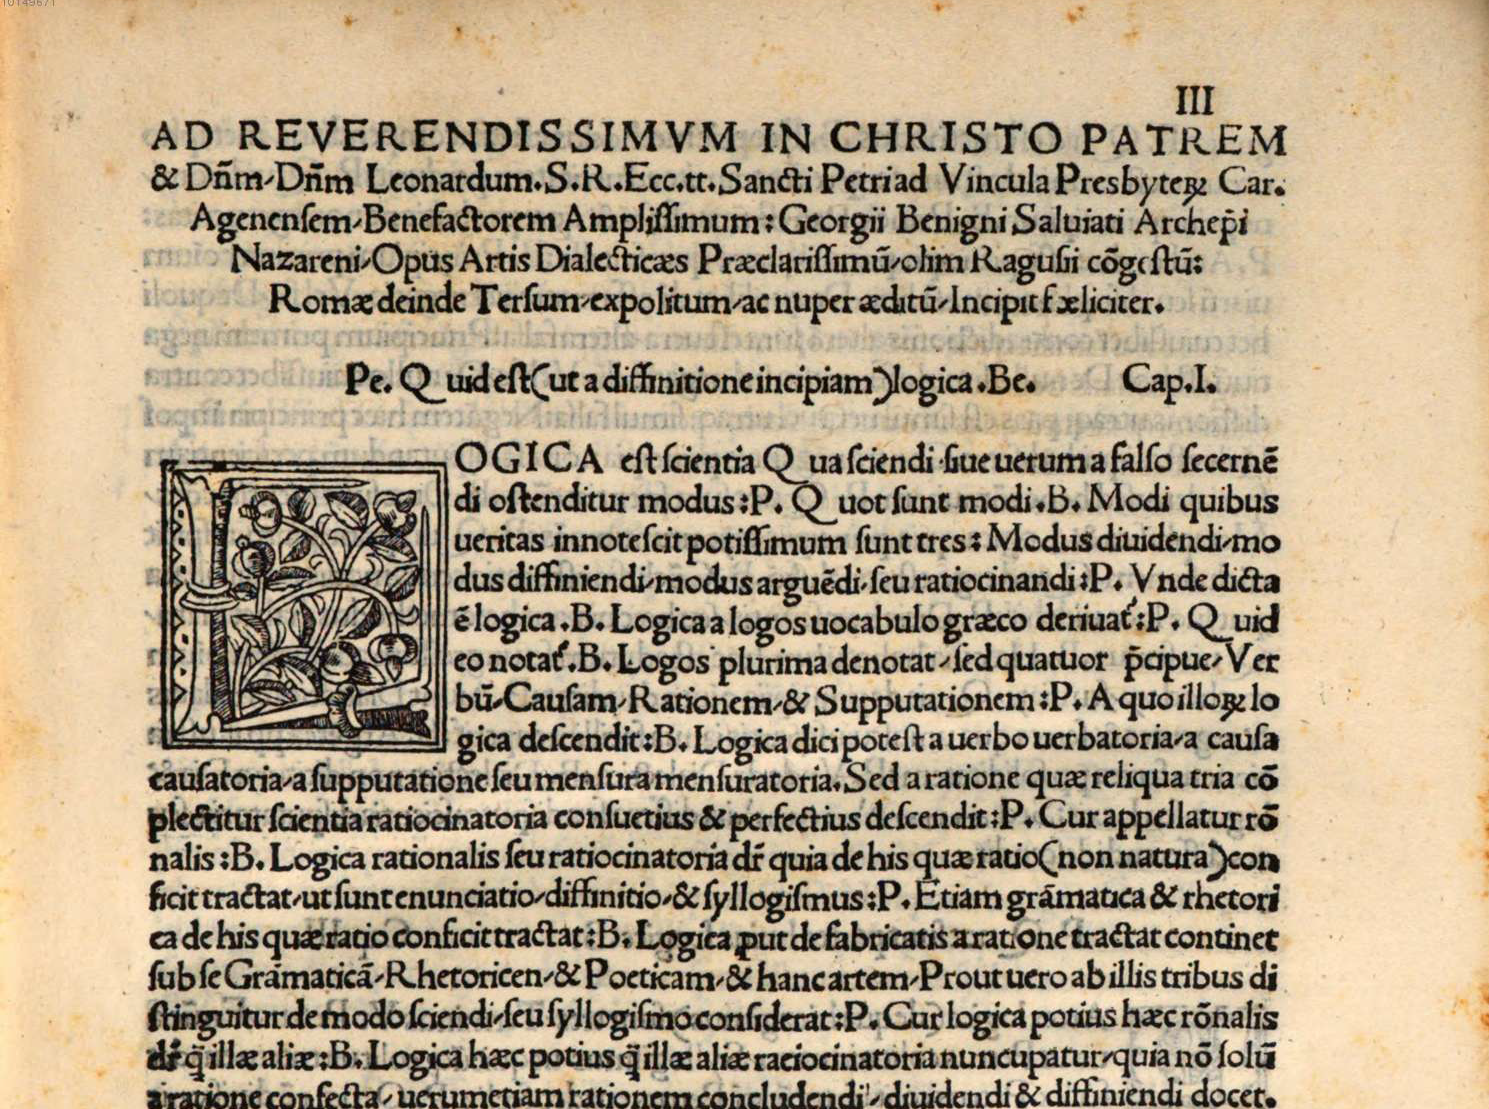 10149671
III
AD REVERENDISSIMVM IN CHRISTO PATREM
& Dñm⸝Dñm Leonardum.S.R.Ecc.tt.Sancti Petri ad Vincula Presbyteꝝ Car.
Agenensem⸝Benefactorem Amplissimum: Georgii Benigni Saluiati Archep̃i
Nazareni⸝Opus Artis Dialecticæs Præclarissimũ⸝olim Ragusii cõgestũ:
Romæ deinde Tersum⸝expolitum⸝ac nuper æditũ⸝Incipit fæliciter.
Pe. Quid est(ut a diffinitione incipiam)logica.Be. Cap.I.
LOGICA est scientia Qua sciendi siue uerum a falso secernẽ
di ostenditur modus:P. Quot sunt modi.B. Modi quibus
ueritas innotescit potissimum sunt tres: Modus diuidendi⸝mo
dus diffiniendi⸝modus arguẽdi⸝seu ratiocinandi:P. Vnde dicta
ẽ logica.B. Logica a logos uocabulo græco deriuat᷑:P. Quid
eo notat᷑.B. Logos plurima denotat⸝sed quatuor p̃cipue⸝Ver
bũ⸝Causam⸝Rationem⸝& Supputationem:P. A quo illoꝝ lo
gica descendit:B. Logica dici potest a uerbo uerbatoria⸝a causa
causatoria⸝a supputatione seu mensura mensuratoria. Sed a ratione quæ reliqua tria cõ
plectitur scientia ratiocinatoria consuetius & perfectius descendit:P. Cur appellatur rõ
nalis:B. Logica rationalis seu ratiocinatoria dr̃ quia de his quæ ratio(non natura)con
ficit tractat⸝ut sunt enunciatio⸝diffinitio⸝& syllogismus:P. Etiam grãmatica & rhetori
ca de his quæ ratio conficit tractat:B. Logica ꝓut de fabricatis a ratione tractat continet
sub se Grãmaticã⸝Rhetoricen⸝& Poeticam⸝& hanc artem⸝Prout uero ab illis tribus di
stinguitur de modo sciendi⸝seu syllogismo considerat:P. Cur logica potius hæc rõnalis
dr̃ q̃ illæ aliæ:B. Logica hæc potius q̃ illæ aliæ raciocinatoria nuncupatur⸝quia nõ solũ
a ratione confecta⸝uerum etiam rationem concludendi⸝diuidendi & diffiniendi docet.